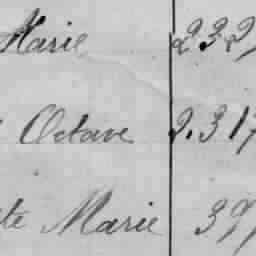 Marie 232
Octave 2.317
te Marie 39